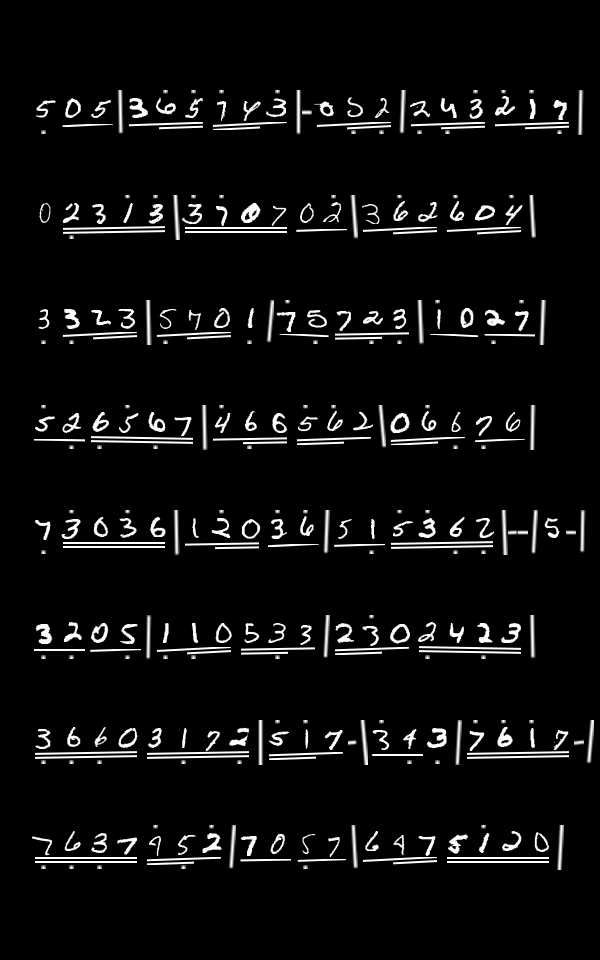 505|365743|-052|243217
02313|370702|362604
3323|5701|75723|1027
526567|466562|06676
73036|12036|515362--|5-
3205|110533|2302423
36603172|517-|343|7617-|
7637952|7057|6475120|